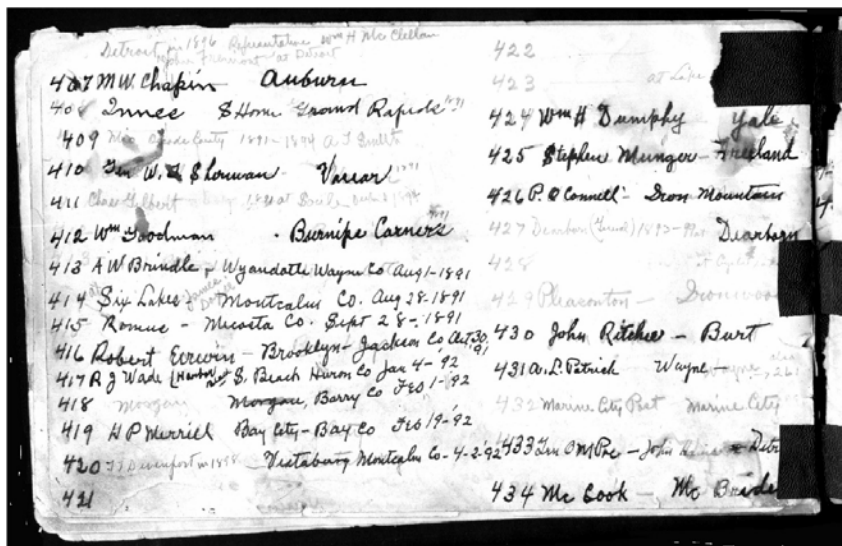 Detroit in 1896 Representative Wm H McClellan
at Detroit
407 M.W. Chapin Auburn
408 Innes S Home Grand Rapids
409 1891-1894
410 Gen W. S Sherman - Vassar 1891
411 Chas Gilbert
412 Wm Goodman - Burnips Corners
413 A W Brindle Wyandotte Wayne Co Aug 1-1891
414 Six Lakes - Montcalm Co. Aug 28-1891
415 Remus - Mecosta Co. Sept 28-1891
416 Robert Erwin - Brooklyn - Jackson Co Oct 30, 91
417 R J Wade (Harbor S. Beach Huron Co Jan 4-'92
418 Morgan Morgan, Barry Co Feb 1-'92
419 H P Merrill Bay City - Bay Co Feb 19-'92
420 Vestaburg Montcalm Co - 4-2-'92
421
422
423 at Lake
424 Wm H Dumphy Yale
425 Stephen Munger - Freeland
426 P. O Connell - Iron Mountain
427 Dearborn 1893- Dearborn
428
429 Pleasonton - Ironwood
430 John Ritchie - Burt
431 A. L. Patrick Wayne
432 Marine City Post Marine City
433 Gen O M Poe - John Detr
434 Mc Cook - Mc Bride